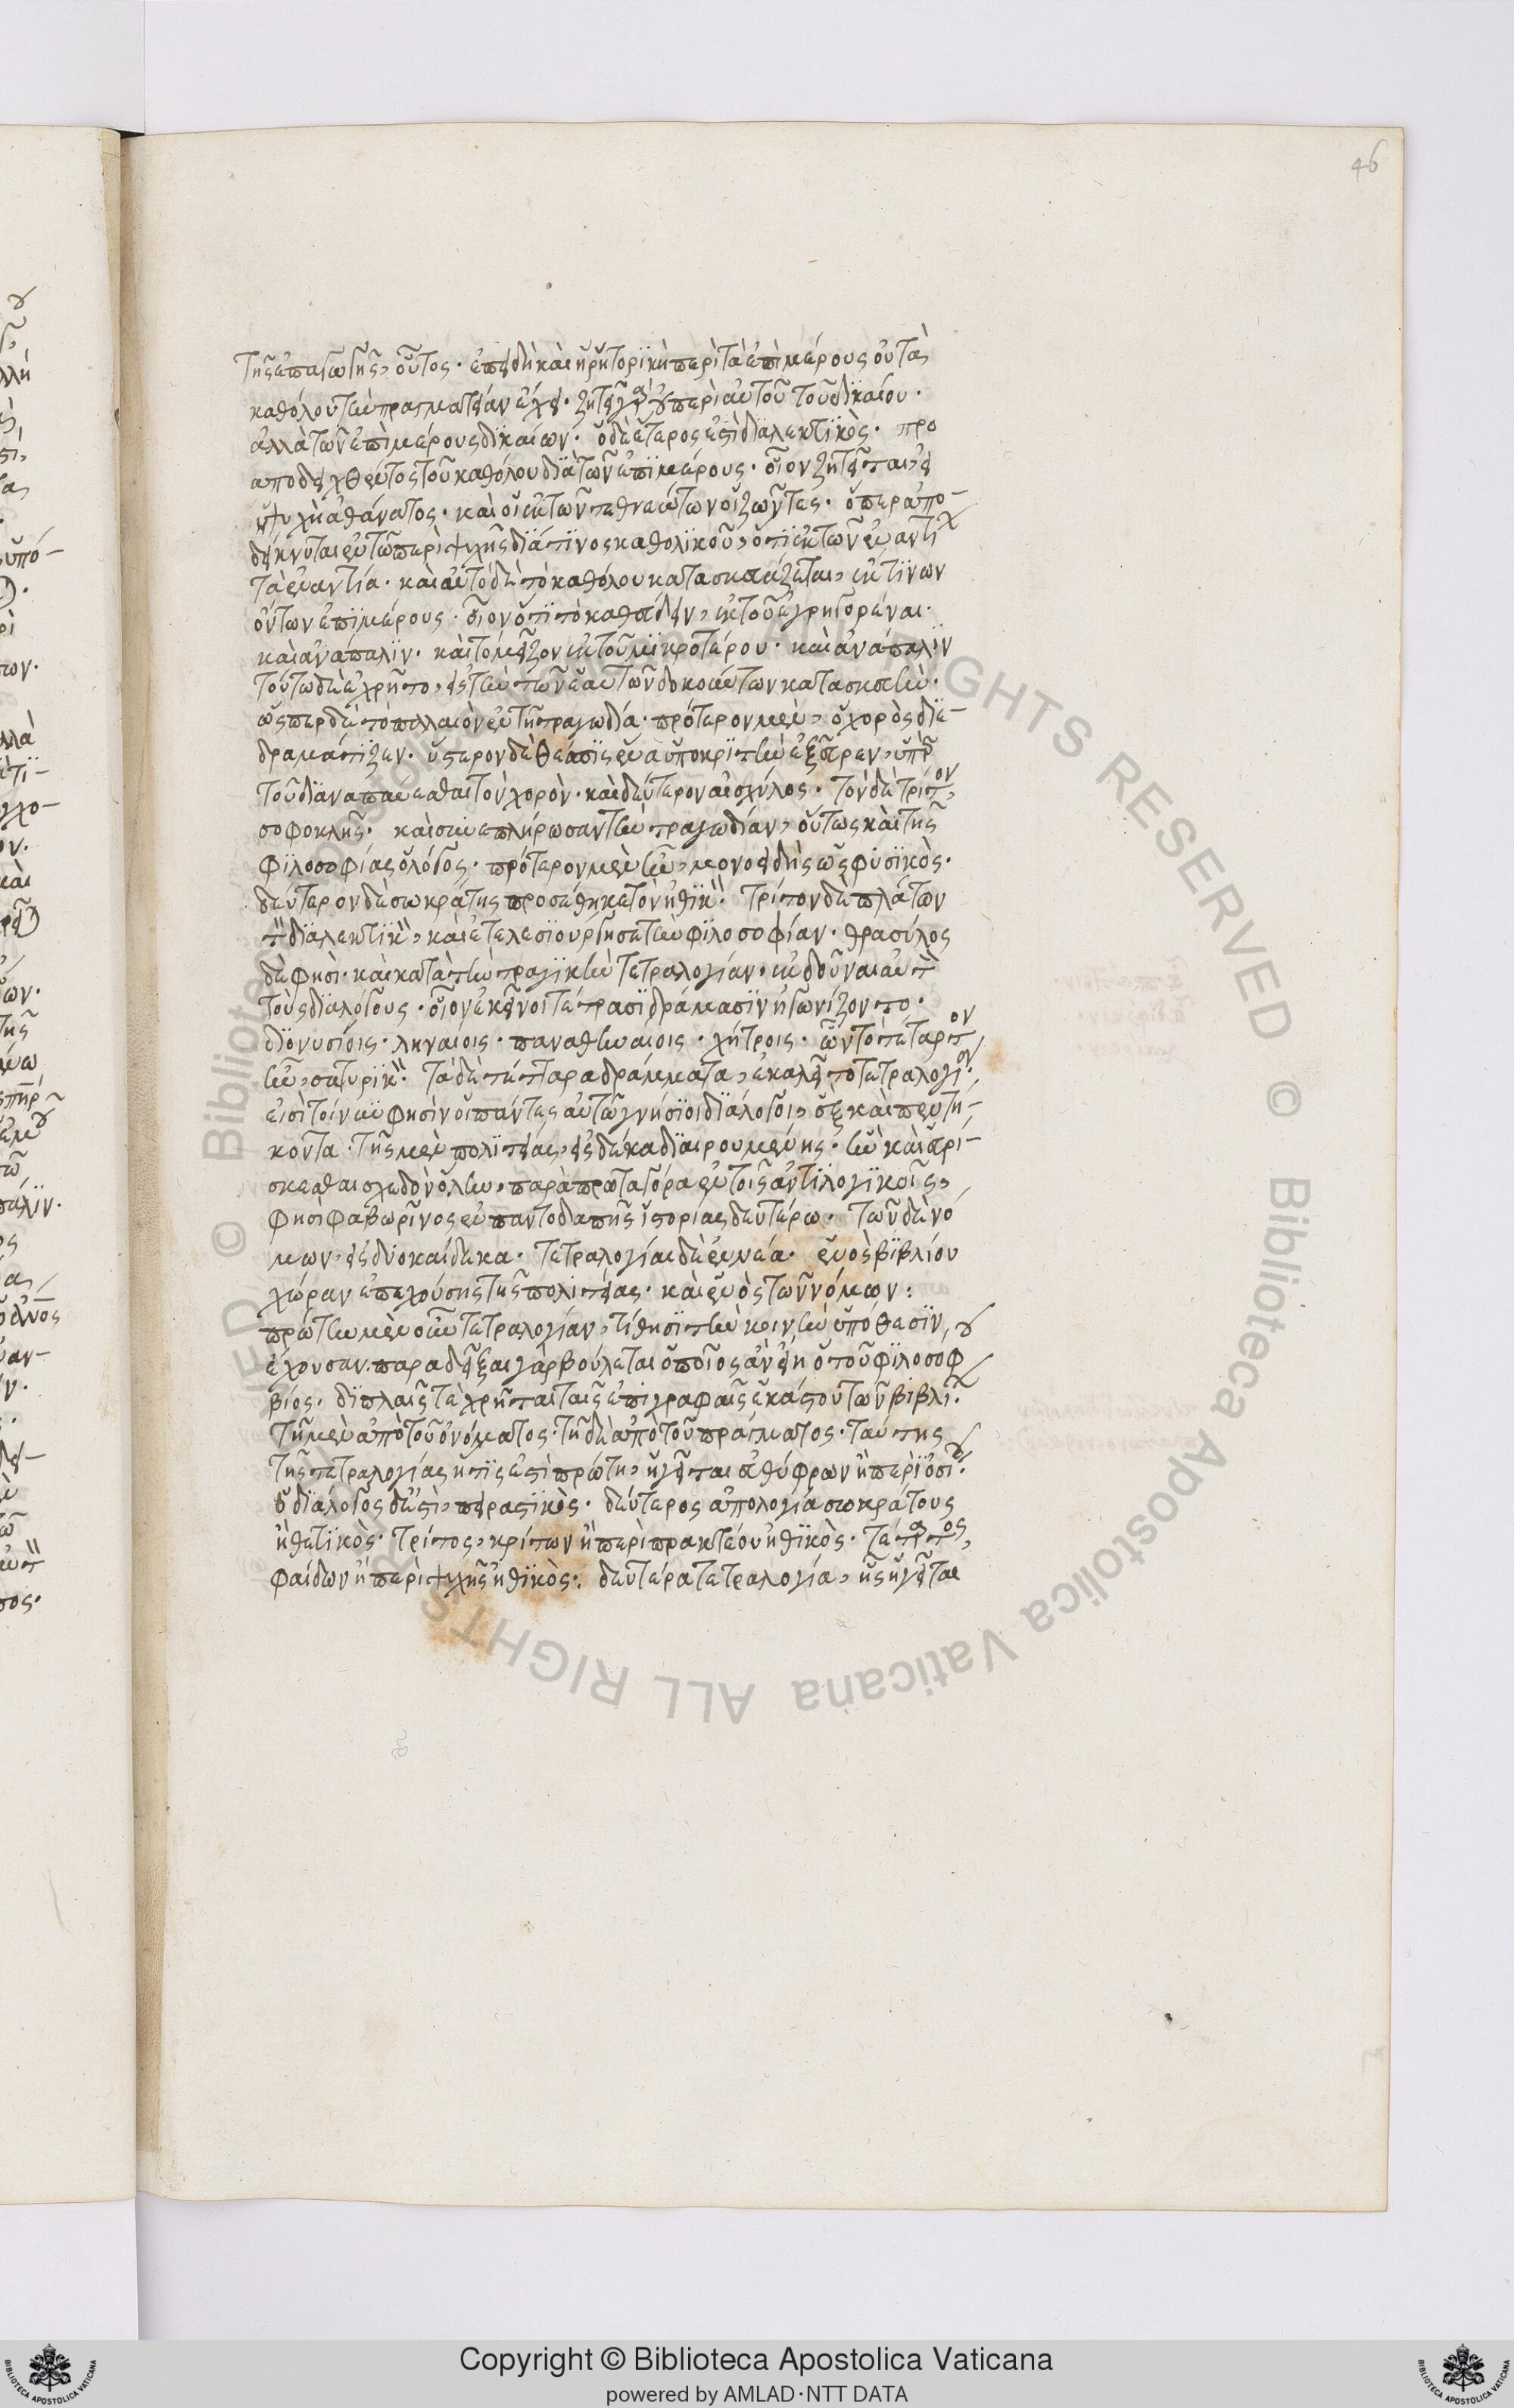 46
τῆς ἐπαγωγῆς, οὗτος· ἐπειδὴ καὶ ἡ ῥητορϊκὴ περὶ τὰ ἐπὶ μέρους οὐ τὰ
καθόλου τὴν πραγματείαν ἔχει· ζητεῖ γὰρ οὐ περὶ αὐτοῦ τοῦ δϊκαίου·
ἀλλὰ τῶν ἐπὶ μέρους δϊκαίων· ὁ δὲ ἕτερος ἐστὶ δϊαλεκτϊκὸς· προ
αποδειχθέντος τοῦ καθόλου δϊὰ τῶν ἐπϊ μέρους· οἷον ζητεῖται, εἰ
ἡ ψυχὴ ἀθάνατος· καὶ οἱ ἐκ τῶν τεθνεώτων οἱ ζῶντες· ὅπερ ἀπο-
δείκνυται ἐν τῶ περὶ ψυχῆς δϊά τϊνος καθολϊκοῦ, ὅτϊ ἐκ τῶν ἐναντί
τὰ ἐναντία· καὶ αὐτὸ δὲ τὸ καθόλου κατασκευάζεται, ἐκ τϊνων
ὄντων ἐπϊ μέρους· οἷον ὅτϊ τὸ καθεύδειν, ἐκ τοῦ ἐγρηγορέναι·
καὶ ἀνάπαλϊν· καὶ τὸ μεῖζον ἐκ τοῦ μϊκροτέρου· καὶ ἀνάπαλϊν
τούτω δὲ ἐχρῆτο, εἰς τὴν τῶν ἑαυτῶν δοκούντων κατασκευὴν·
ὥσπερ δὲ τὸ παλαιὸν ἐν τῆ τραγωδία· πρότερον μὲν, ὁ χορὸς δϊε-
δραμάτιζεν· ὕστερον δὲ θέσπϊς ἕνα ὑποκρϊτὴν ἐξεῦρεν, ὑπὲρ
τοῦ δϊαναπαύεσθαι τὸν χορὸν· καὶ δεύτερον αἰσχύλος· τὸν δὲ τρίτον,
σοφοκλῆς· καὶ συνεπλήρωσαν τὴν τραγωδίαν, οὕτως καὶ τῆς
φϊλοσοφίας ὁ λόγος· πρότερον μὲν ἦν, μονοειδὴς ὡς φϋσϊκὸς·
δεύτερον δὲ σωκράτης προσέθηκε τὸν ἠθϊκὸν· τρίτον δὲ πλάτων
τὸν δϊαλεκτϊκὸν, καὶ ἐτελεσϊούργησε τὴν φϊλοσοφίαν· θρασύλος
δὲ φησὶ· καὶ κατὰ τὴν τραγϊκὴν τετραλογίαν· ἐκδοῦναι αὐτὸν
τοὺς δϊαλόγους· οἷον ἐκεῖνοι τέτρασϊ δράμασϊν ἠγωνίζοντο·
δϊονυσίοις· ληναίοις· παναθηναίοις· χύτροις· ὧν τὸ τέταρτον
ἦν, σατυρϊκὸν· τὰ δὲ τέτταρα δράμματα, ἐκαλεῖτο τετραλογία·
εἰσὶ τοίνυν φησὶν οἱ πάντες αὐτῶ γνήσϊοι δϊάλογοι, ἓξ καὶ πεντή-
κοντα· τῆς μὲν πολϊτείας, εἰς δέκα δϊαιρουμένης· ἣν καὶ εὑρί-
σκεσθαι σχεδὸν ὅλην, παρὰ πρωταγόρα ἐν τοῖς ἀντϊλογϊκοῖς,
φησὶ φαβωρῖνος ἐν παντοδαπῆς ἱστορίας δευτέρω· τῶν δὲ νό
μων, εἰς δυοκαίδεκα· τετραλογίαι δὲ ἐννέα· ἑνὸς βϊβλίου
χώραν ἐπεχούσης τῆς πολιτείας· καὶ ἑνὸς τῶν νόμων:
πρώτην μὲν οὖν τετραλογίαν, τίθησϊ τὴν κοινὴν ὑπόθεσϊν,
ἔχουσαν· παραδεῖξαι γὰρ βούλεται ὁποῖος ἂν εἴη ὁ τοῦ φϊλοσόφου
βίος· δϊπλαῖς τε χρῆται ταῖς ἐπϊγραφαῖς ἑκάστου τῶν βιβλίων·
τῆ μὲν ἀπὸ τοῦ ὀνόματος· τῆ δὲ ἀπὸ τοῦ πράγματος· ταύτης
τῆς τετραλογίας ἥτϊς ἐστὶ πρώτη, ἡγεῖται εὐθύφρων ἢ περὶ ὁσίου·
ὁ δϊάλογος δ' ἐστὶ, πειραστϊκὸς· δεύτερος ἀπολογία σωκράτους
ἠθετϊκὸς· τρίτος, κρίτων ἢ περὶ πρακτέου ἠθϊκὸς· τέταρτος,
φαίδων ἢ περὶ ψυχῆς ἠθϊκὸς· δευτέρα τετραλογία, ἧς ἡγεῖται
Copyright © Biblioteca Apostolica Vaticana
powered by AMLAD·NTT DATA